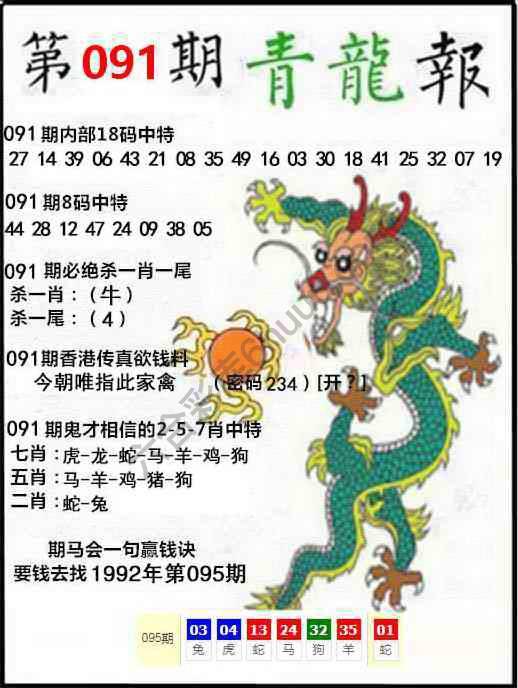 第091期青龍報
091期内部18码中特
27 14 39 06 43 21 08 35 49 16 03 30 18 41 25 32 07 19
091期8码中特
44 28 12 47 24 09 38 05
091期必绝杀一肖一尾
杀一肖：（牛）
杀一尾：（4）
091期香港传真欲钱料
今朝唯指此家禽 （密码234）[开？]
091期鬼才相信的2-5-7肖中特
七肖：虎-龙-蛇-马-羊-鸡-狗
五肖：马-羊-鸡-猪-狗
二肖：蛇-兔
期马会一句赢钱诀
要钱去找1992年第095期
095期 03 04 13 24 32 35 01
兔 虎 蛇 马 狗 羊 蛇